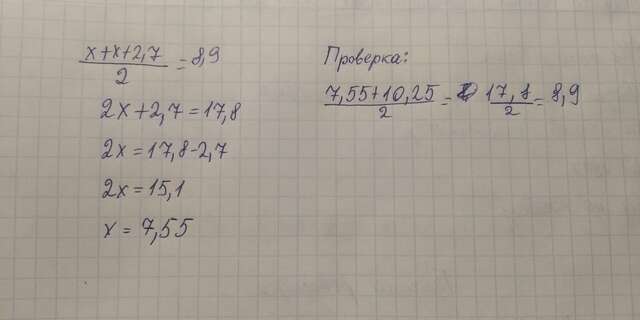 x+x+2,7
2
=8,9
2x+2,7=17,8
2x=17,8-2,7
2x=15,1
x=7,55
Проверка:
7,55+10,25
2
=
17,8
2
=8,9